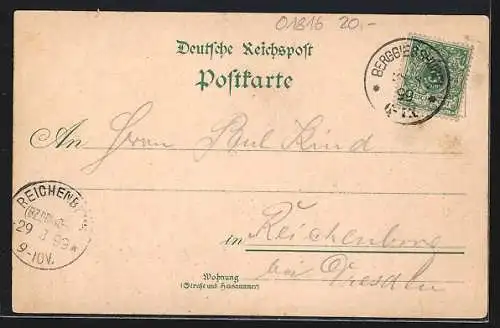 01816 20,-
Deutsche Reichspost
Postkarte
BERGGIESSHÜBEL
99
4-5 N.
An Herrn Paul Lind
REICHENB
29 3 99
9-10V.
in Reichenberg
bei Dresden
Wohnung
(Straße und Hausnummer)